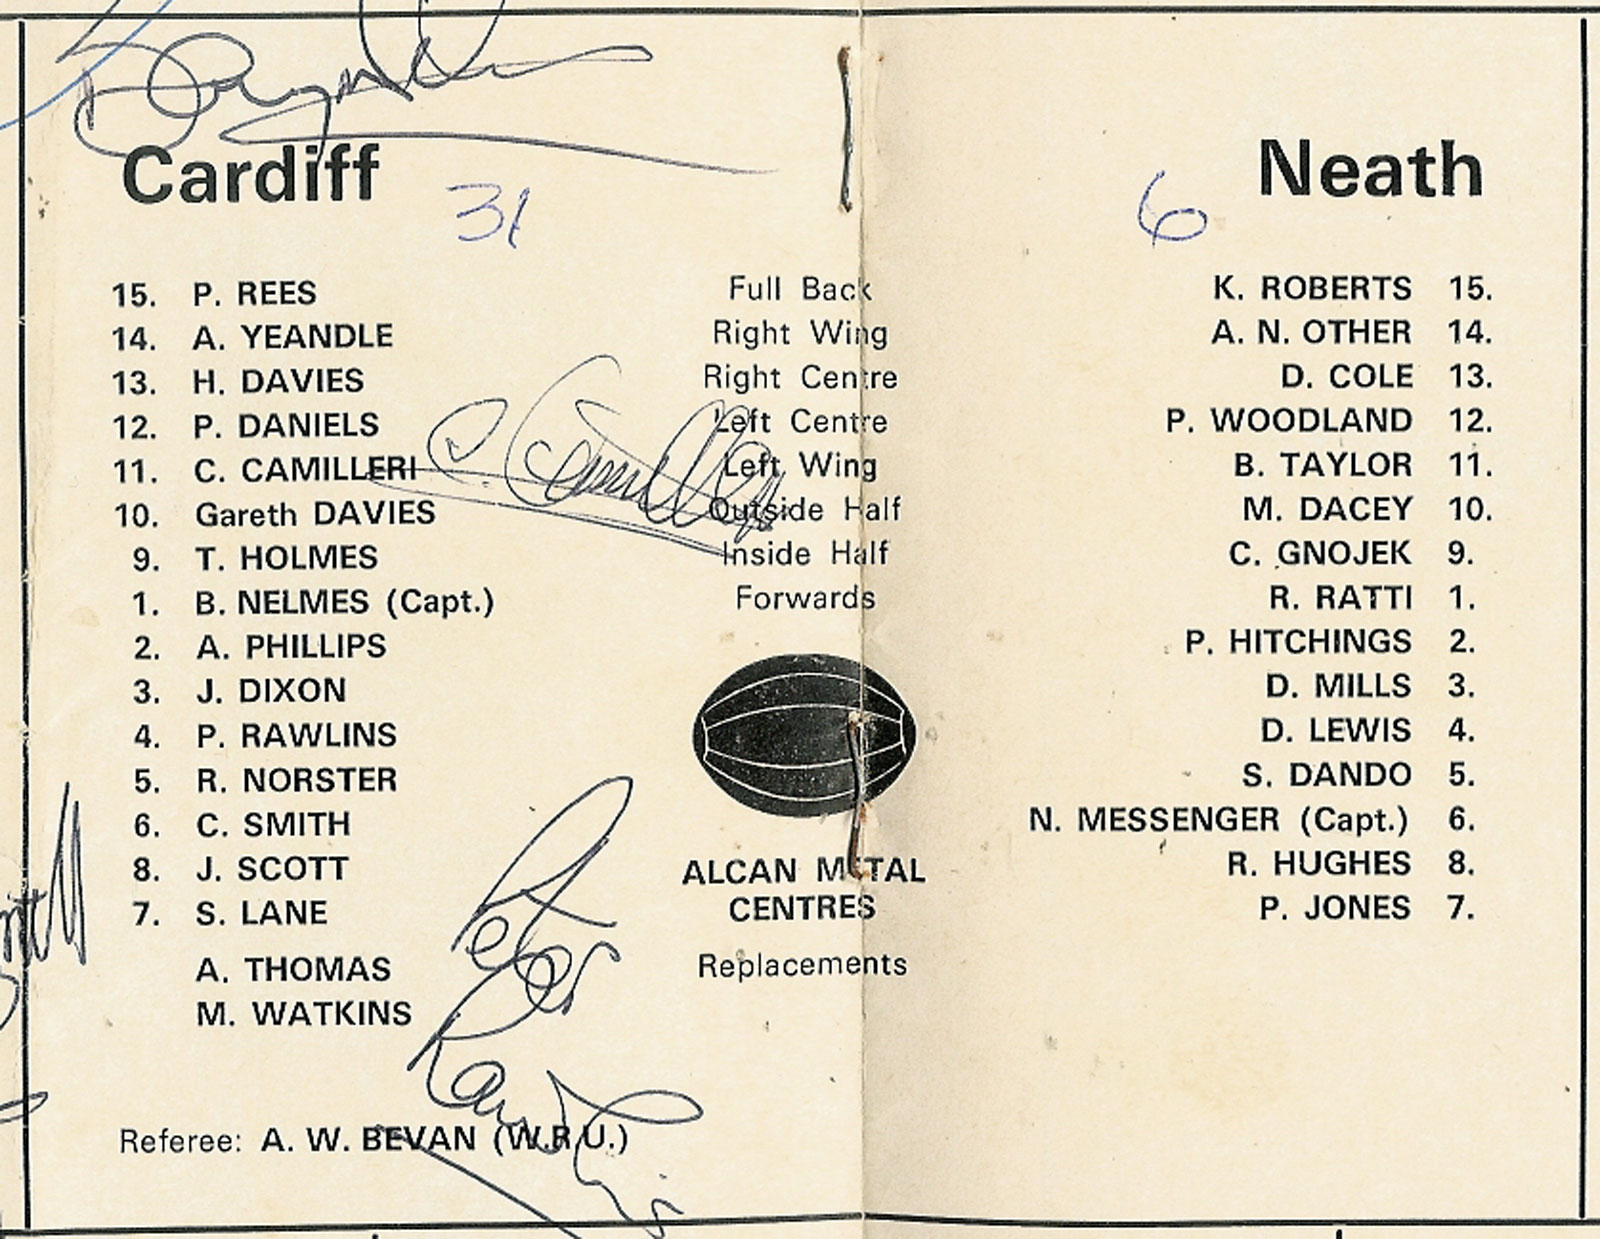 Cardiff Neath
31 6
15. P. REES Full Back K. ROBERTS 15.
14. A. YEANDLE Right Wing A. N. OTHER 14.
13. H. DAVIES Right Centre D. COLE 13.
12. P. DANIELS Left Centre P. WOODLAND 12.
11. C. CAMILLERI Left Wing B. TAYLOR 11.
C. Camilleri
10. Gareth DAVIES Outside Half M. DACEY 10.
9. T. HOLMES Inside Half C. GNOJEK 9.
1. B. NELMES (Capt.) Forwards R. RATTI 1.
2. A. PHILLIPS P. HITCHINGS 2.
3. J. DIXON D. MILLS 3.
4. P. RAWLINS D. LEWIS 4.
5. R. NORSTER S. DANDO 5.
6. C. SMITH N. MESSENGER (Capt.) 6.
8. J. SCOTT ALCAN METAL R. HUGHES 8.
7. S. LANE CENTRES P. JONES 7.
A. THOMAS Replacements
M. WATKINS
Peter
Rawlins
Referee: A. W. BEVAN (W.R.U.)